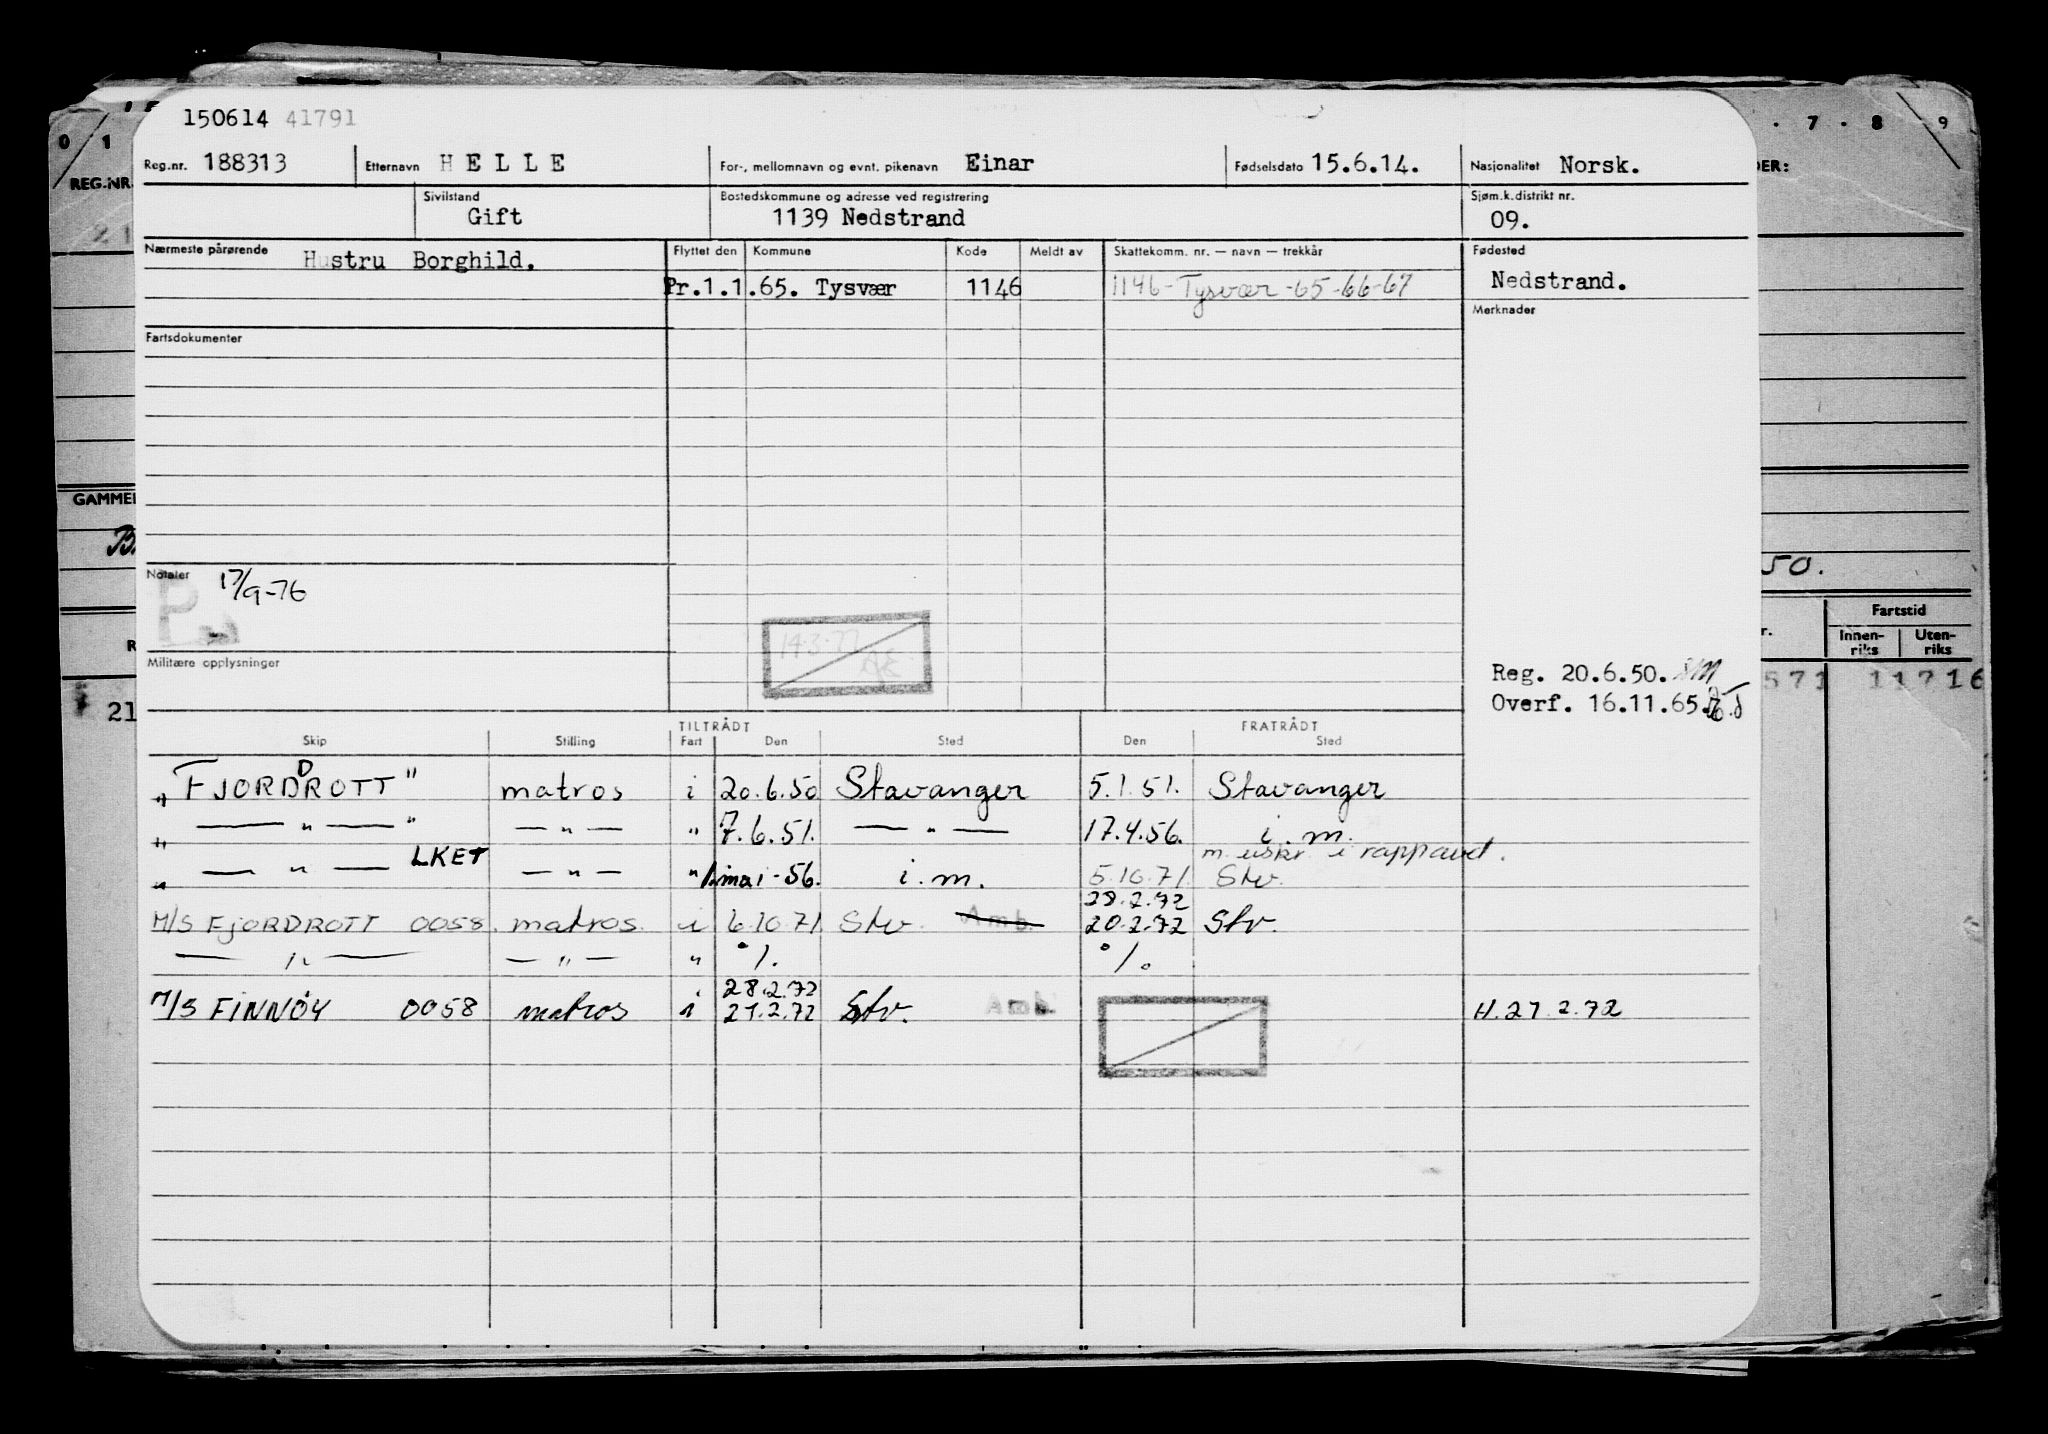 150614 41791
Reg.nr. 188313 Etternavn HELLE For-, mellomnavn og evnt. pikenavn Einar Fødselsdato 15.6.14. Nasjonalitet Norsk.
Sivilstand Gift Bostedskommune og adresse ved registrering 1139 Nedstrand Sjøm.k.distrikt nr. 09.
Nærmeste pårørende Hustru Borghild. Flyttet den Kommune Kode Meldt av Skattekomm. nr. — navn — trekkår Fødested
Pr.1.1.65. Tysvær 1146 1146-Tysvær-65-66-67 Nedstrand.
Merknader
Fartsdokumenter
Notater 17/9-76
14.3.77
Militære opplysninger
Reg. 20.6.50.
Overf. 16.11.65.
TILTRÅDT FRATRÅDT
Skip Stilling Fart Den Sted Den Sted
„FJORDDROTT" matros i 20.6.50 Stavanger 5.1.51. Stavanger
„ — " — " — " — " 7.6.51. — " — 17.4.56. i.m.
m. uskr. i rappault.
„ — " — LKET — " — " 1.mai-56. i.m. 5.10.71. Stv.
28.2.72
M/S FJORDDROTT 0058. matros. i 6.10.71. Stv. Amb. 20.2.72 Stv.
— " — — " — " °/. °/.
28.2.72
M/S FINNÖY 0058 matros i 21.2.72 Stv. Amb. H.27.2.72
0 1 7 · 8 9
REG.NR.
DER:
21
GAMMEL
50.
Fartstid
Innen-riks Uten-riks
571 11716
21